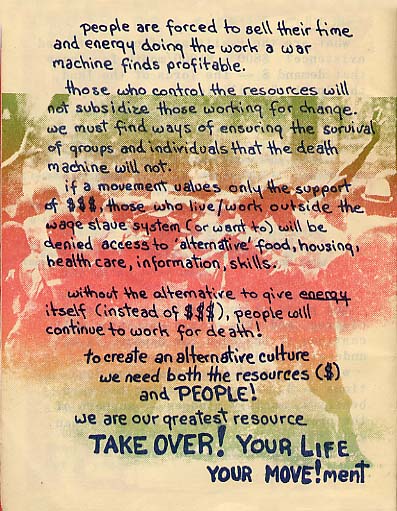 people are forced to sell their time
and energy doing the work a war
machine finds profitable.
those who control the resources will
not subsidize those working for change.
we must find ways of ensuring the survival
of groups and individuals that the death
machine will not.
if a movement values only the support
of $$$, those who live/work outside the
wage slave system (or want to) will be
denied access to 'alternative' food, housing,
health care, information, skills.
without the alternative to give energy
itself (instead of $$$), people will
continue to work for death!
to create an alternative culture
we need both the resources ($)
and PEOPLE!
we are our greatest resource
TAKE OVER! YOUR LIFE
YOUR MOVE!ment